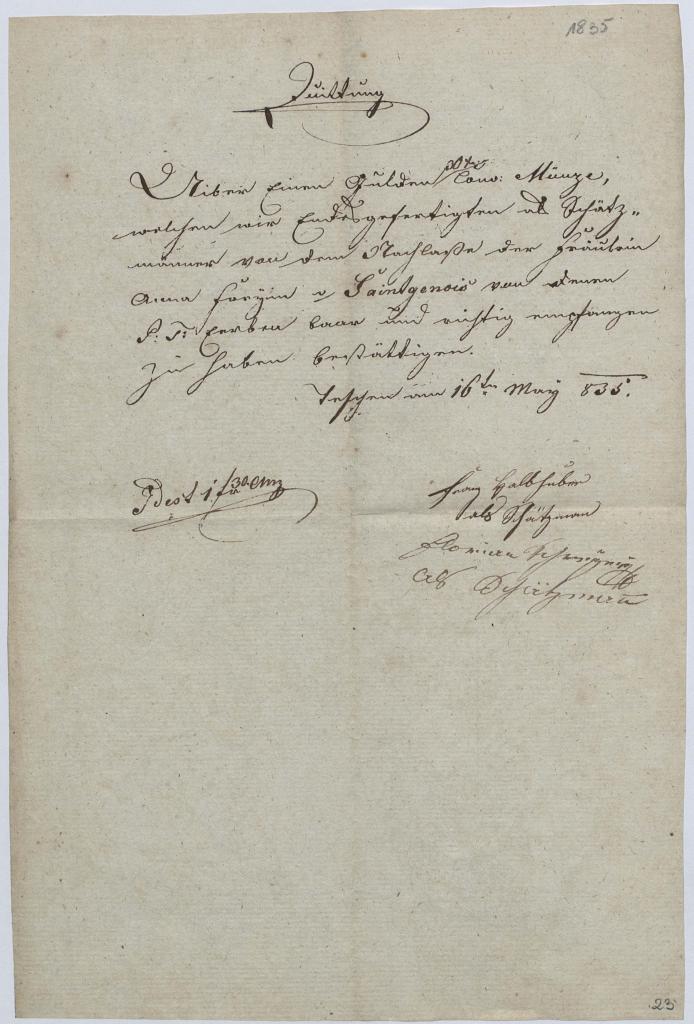 1835
Quittung
Uiber Einen Gulden 30 xr Conv: Münze,
welchen wir Endesgefertigten als Schätz„
männer von dem Nachlaße der Fräulein
Anna Freyin v Saintgenois von denen
P: T: Erben baar und richtig empfangen
zu haben bestättigen.
Teschen am 16ten May 835.
Idest 1 f 30 CMz
Franz Halbhuber
als Schätzman
Florian
als Schätzmann
23